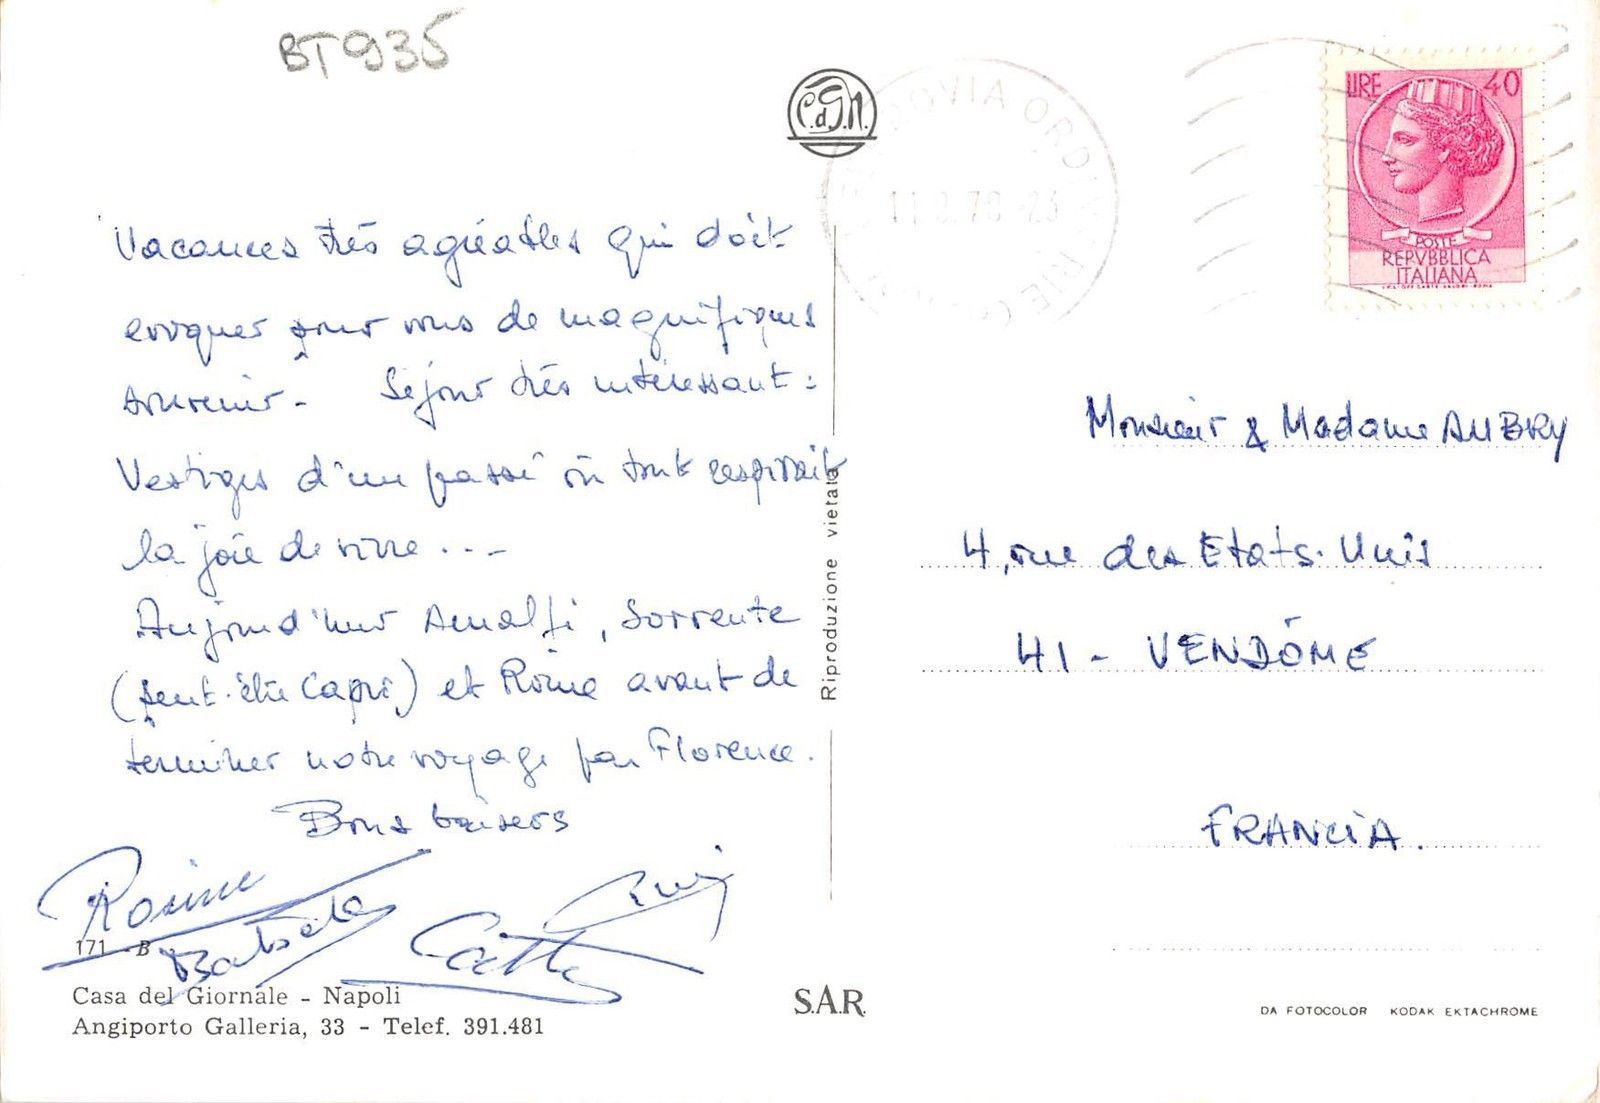 BT935
C.d.G.N.
OVIA ORD
LIRE 40
POSTE
REPVBBLICA
ITALIANA
Vacances très agréables qui doit
évoquer pour vous de magnifiques
souvenir - Séjour très intéressant :
Vestiges d'un passé où tout respirait
la joie de vivre . . . -
Aujourd'hui Amalfi, Sorrente
(peut-être Capri) et Rome avant de
terminer notre voyage par Florence.
Bons baisers
Rosine
Cath
171 - B
Casa del Giornale - Napoli
Angiporto Galleria, 33 - Telef. 391.481
Riproduzione vietata
S.A.R.
Monsieur & Madame AUBRY
4, rue des Etats-Unis
41 - VENDÔME
FRANCIA.
DA FOTOCOLOR KODAK EKTACHROME